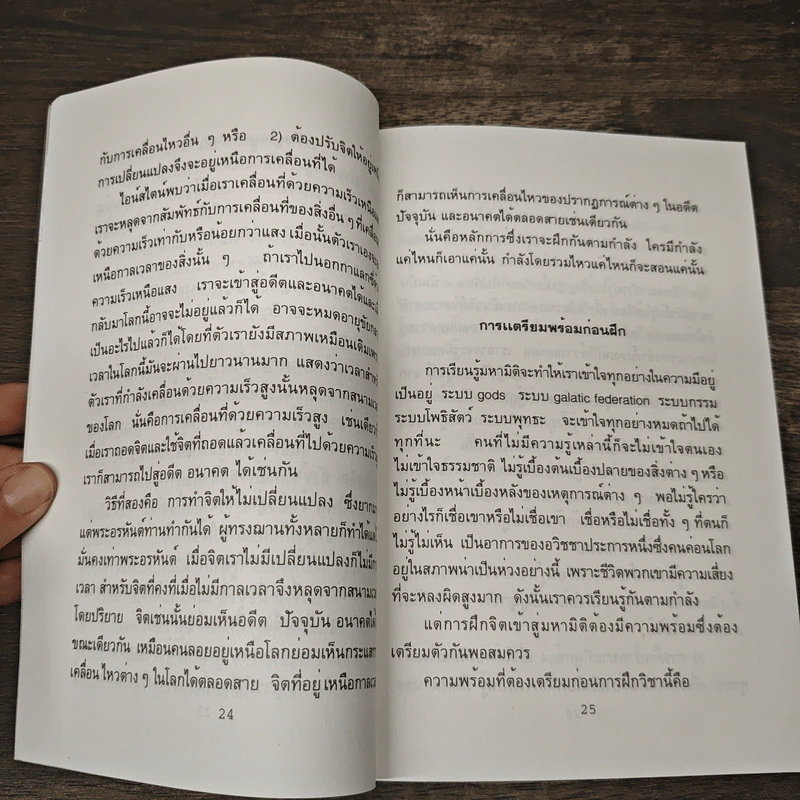 กับการเคลื่อนไหวอื่น ๆ หรือ 2) ต้องปรับจิตให้อยู่เหนือ
การเปลี่ยนแปลงจึงจะอยู่เหนือการเคลื่อนที่ได้
ไอน์สไตน์พบว่าเมื่อเราเคลื่อนที่ด้วยความเร็วเหนือแสง
เราจะหลุดจากสัมพัทธ์กับการเคลื่อนที่ของสิ่งอื่น ๆ ที่เคลื่อน
ด้วยความเร็วเท่ากับหรือน้อยกว่าแสง เมื่อนั้นตัวเราเองจะอยู่
เหนือกาลเวลาของสิ่งนั้น ๆ ถ้าเราไปนอกกาแลกซี่ด้วย
ความเร็วเหนือแสง เราจะเข้าสู่อดีตและอนาคตได้และเมื่อ
กลับมาโลกนี้อาจจะไม่อยู่แล้วก็ได้ อาจจะหมดอายุขัยกลาย
เป็นอะไรไปแล้วก็ได้โดยที่ตัวเรายังมีสภาพเหมือนเดิมเพราะ
เวลาในโลกนี้มันจะผ่านไปยาวนานมาก แสดงว่าเวลาสำหรับ
ตัวเราที่กำลังเคลื่อนด้วยความเร็วสูงนั้นหลุดจากสนามเวลา
ของโลก นั่นคือการเคลื่อนที่ด้วยความเร็วสูง เช่นเดียวกัน
เมื่อเราถอดจิตและใช้จิตที่ถอดแล้วเคลื่อนที่ไปด้วยความเร็วสูง
เราก็สามารถไปสู่อดีต อนาคต ได้เช่นกัน
วิธีที่สองคือ การทำจิตให้ไม่เปลี่ยนแปลง ซึ่งยากมาก
แต่พระอรหันต์ท่านทำกันได้ ผู้ทรงฌานทั้งหลายก็ทำได้แต่ไม่
มั่นคงเท่าพระอรหันต์ เมื่อจิตเราไม่มีเปลี่ยนแปลงก็ไม่มีกาล
เวลา สำหรับจิตที่คงที่เมื่อไม่มีกาลเวลาจึงหลุดจากสนามเวลา
โดยปริยาย จิตเช่นนั้นย่อมเห็นอดีต ปัจจุบัน อนาคตได้ใน
ขณะเดียวกัน เหมือนคนลอยอยู่เหนือโลกย่อมเห็นกระแสการ
เคลื่อนไหวต่าง ๆ ในโลกได้ตลอดสาย จิตที่อยู่เหนือกาลเวลา
24
ก็สามารถเห็นการเคลื่อนไหวของปรากฏการณ์ต่าง ๆ ในอดีต
ปัจจุบัน และอนาคตได้ตลอดสายเช่นเดียวกัน
นั่นคือหลักการซึ่งเราจะฝึกกันตามกำลัง ใครมีกำลัง
แค่ไหนก็เอาแค่นั้น กำลังโดยรวมไหวแค่ไหนก็จะสอนแค่นั้น
การเตรียมพร้อมก่อนฝึก
การเรียนรู้มหามิติจะทำให้เราเข้าใจทุกอย่างในความมีอยู่
เป็นอยู่ ระบบ gods ระบบ galatic federation ระบบกรรม
ระบบโพธิสัตว์ ระบบพุทธะ จะเข้าใจทุกอย่างหมดถ้าไปได้
ทุกที่นะ คนที่ไม่มีความรู้เหล่านี้ก็จะไม่เข้าใจตนเอง
ไม่เข้าใจธรรมชาติ ไม่รู้เบื้องต้นเบื้องปลายของสิ่งต่าง ๆ หรือ
ไม่รู้เบื้องหน้าเบื้องหลังของเหตุการณ์ต่าง ๆ พอไม่รู้ใครว่า
อย่างไรก็เชื่อเขาหรือไม่เชื่อเขา เชื่อหรือไม่เชื่อทั้ง ๆ ที่ตนก็
ไม่รู้ไม่เห็น เป็นอาการของอวิชชาประการหนึ่งซึ่งคนค่อนโลก
อยู่ในสภาพน่าเป็นห่วงอย่างนี้ เพราะชีวิตพวกเขามีความเสี่ยง
ที่จะหลงผิดสูงมาก ดังนั้นเราควรเรียนรู้กันตามกำลัง
แต่การฝึกจิตเข้าสู่มหามิติต้องมีความพร้อมซึ่งต้อง
เตรียมตัวกันพอสมควร
ความพร้อมที่ต้องเตรียมก่อนการฝึกวิชานี้คือ
25